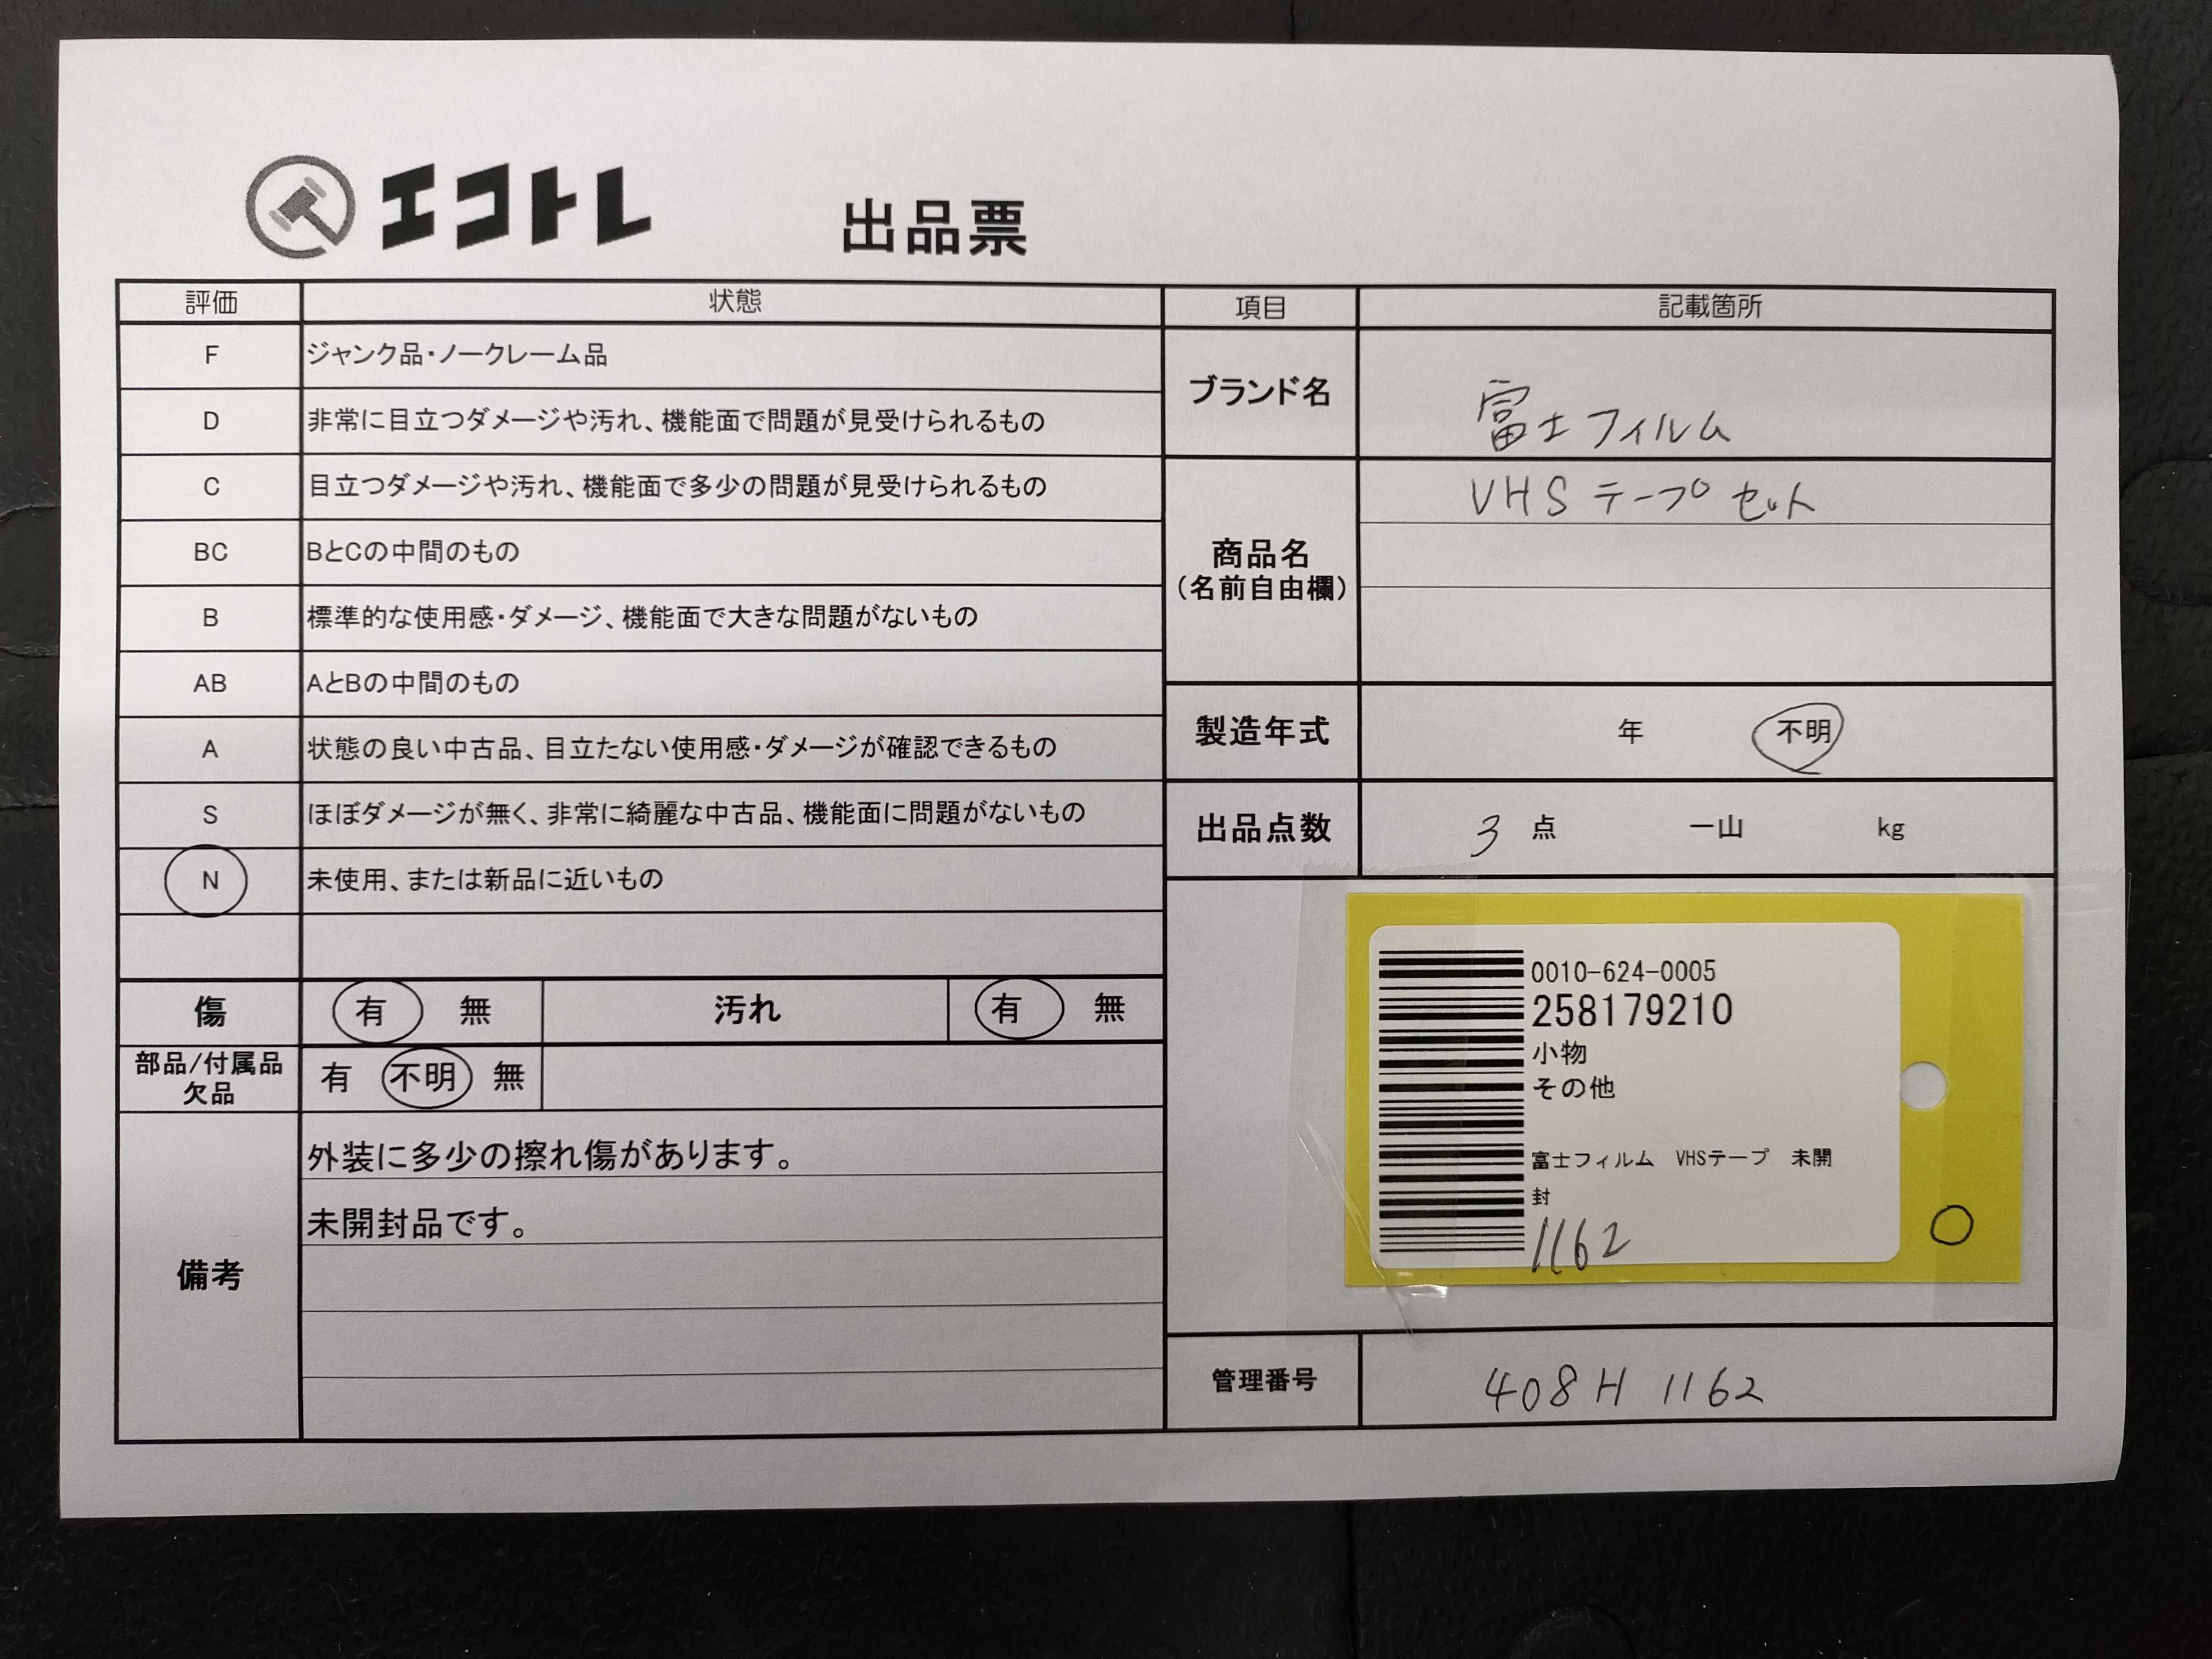 エコトレ 出品票
評価 状態
F ジャンク品・ノークレーム品
D 非常に目立つダメージや汚れ、機能面で問題が見受けられるもの
C 目立つダメージや汚れ、機能面で多少の問題が見受けられるもの
BC BとCの中間のもの
B 標準的な使用感・ダメージ、機能面で大きな問題がないもの
AB AとBの中間のもの
A 状態の良い中古品、目立たない使用感・ダメージが確認できるもの
S ほぼダメージが無く、非常に綺麗な中古品、機能面に問題がないもの
N 未使用、または新品に近いもの
傷 有 無 汚れ 有 無
部品/付属品
欠品
有 不明 無
備考
外装に多少の擦れ傷があります。
未開封品です。
項目 記載箇所
ブランド名 富士フィルム
商品名
(名前自由欄)
VHS テープ セット
製造年式 年 不明
出品点数 3 点 一山 kg
0010-624-0005
258179210
小物
その他
富士フィルム VHSテープ 未開
封
1162
管理番号 408H 1162